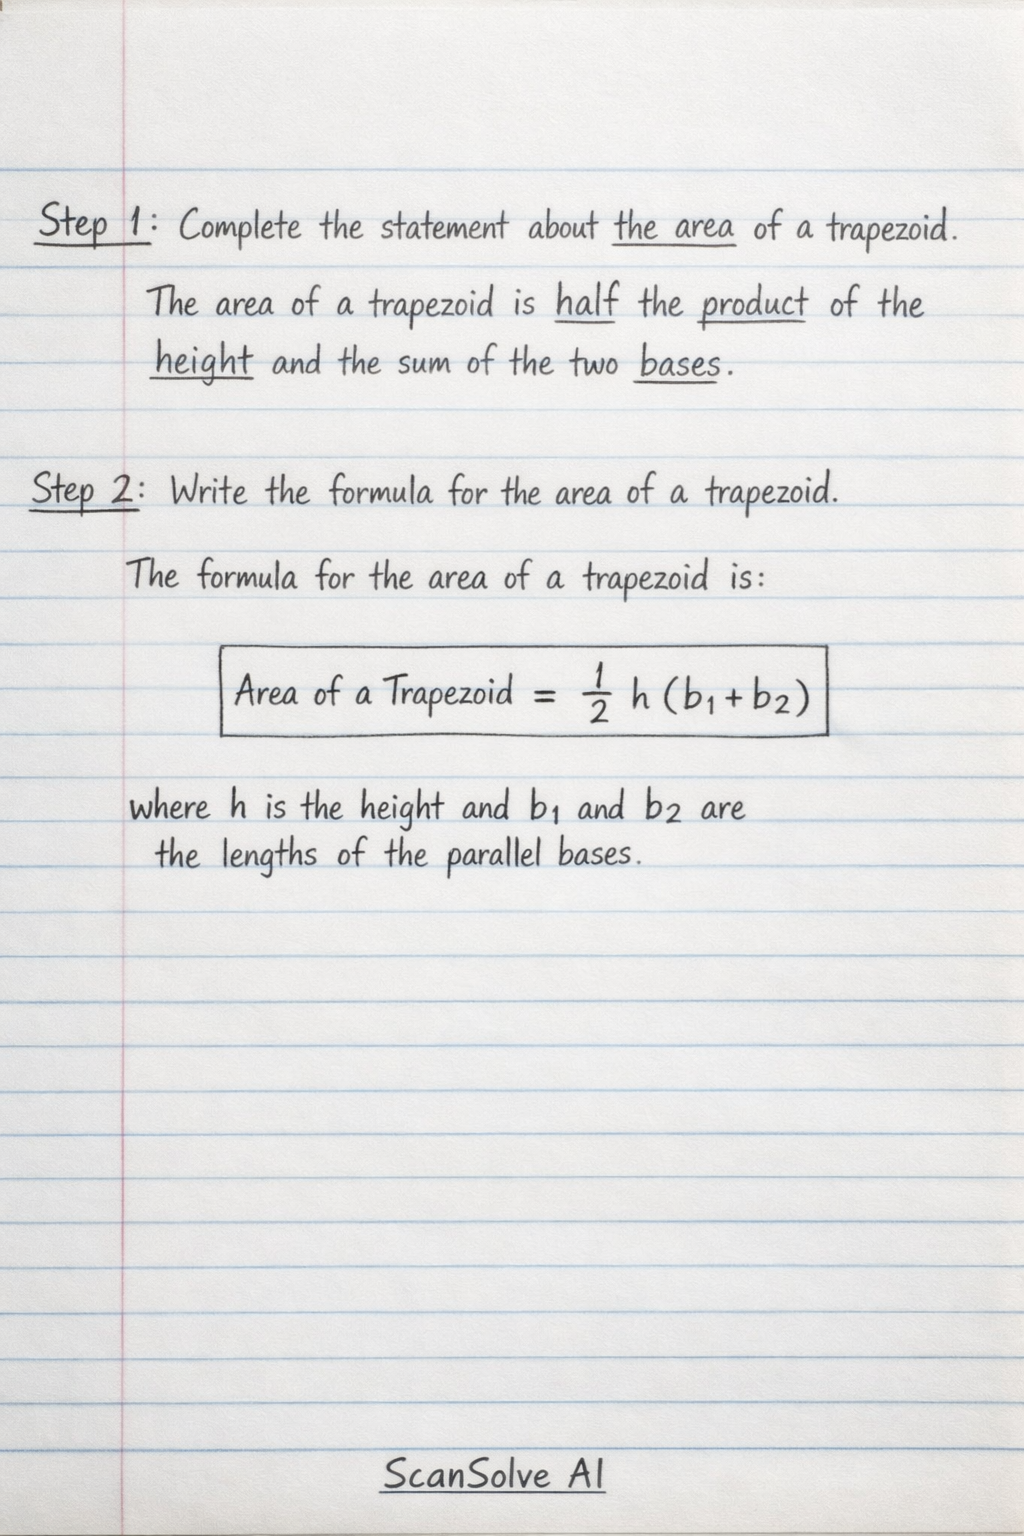 Step 1: Complete the statement about the area of a trapezoid.
The area of a trapezoid is half the product of the
height and the sum of the two bases.
Step 2: Write the formula for the area of a trapezoid.
The formula for the area of a trapezoid is:
Area of a Trapezoid = 1/2 h (b₁ + b₂)
where h is the height and b₁ and b₂ are
the lengths of the parallel bases.
ScanSolve AI